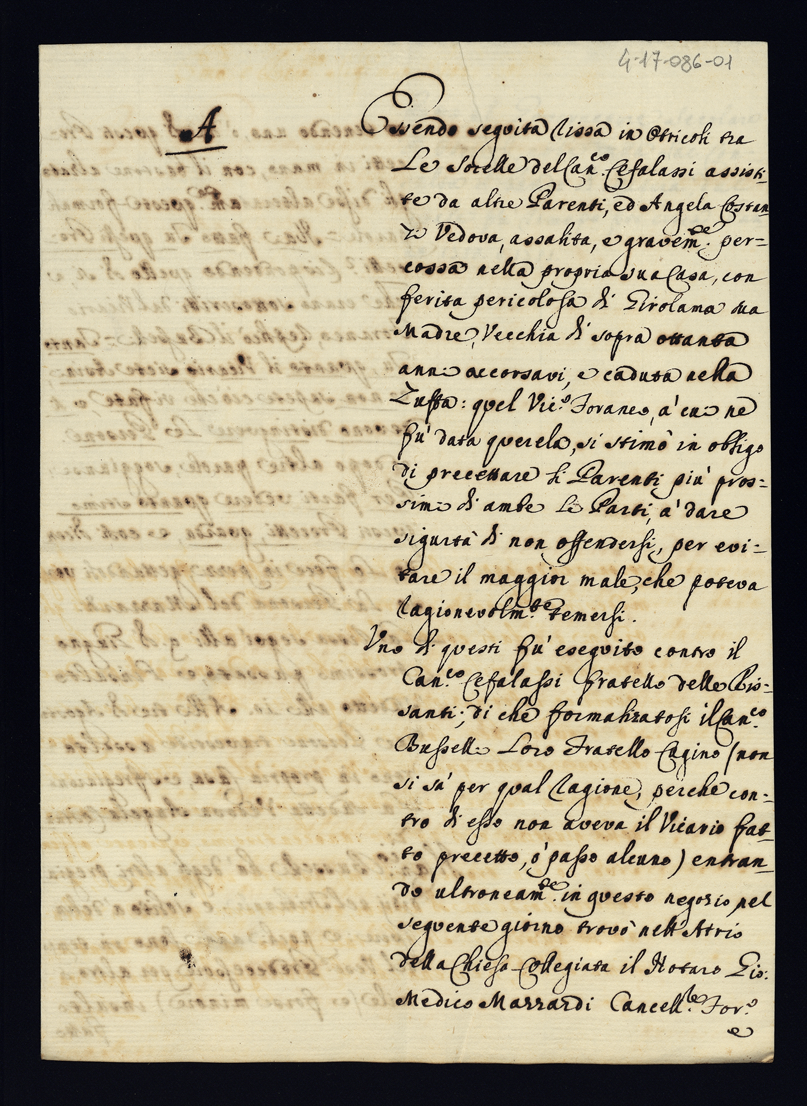 4-17-086-01
A
Essendo seguita rissa in Otricoli tra
Le Sorelle del Can.co Cefalassi assisti-
te da altre Parenti, ed Angela Costan-
zi Vedova, assalita, e gravem.te per=
cossa nella propria sua Casa, con
ferita pericolosa di Girolama sua
Madre, Vecchia di sopra ottanta
anni accorsavi, e caduta nella
Zuffa: quel Vic.o Foraneo, a' cui ne
fu' data querela, si stimò in obligo
di precettare li Parenti piu' pros=
simi di ambe le Parti, a' dare
sigurtà di non offendersi, per evi-
tare il maggior male, che poteva
ragionevolm.te temersi.
Uno di questi fu' eseguito contro il
Can.co Cefalassi fratello delle Ris-
santi; di che formalizatosi il Can.co
Busselli Loro Fratello Cugino (non
si sa' per qual ragione, perche con-
tro di esso non aveva il Vicario fat-
to precetto, o' passo alcuno) entran-
do ultroneam.te in questo negozio, nel
seguente giorno trovò nell'Atrio
della Chiesa Collegiata il Notaro Gio:
Medico Mazzardi Cancell.re For.o
e